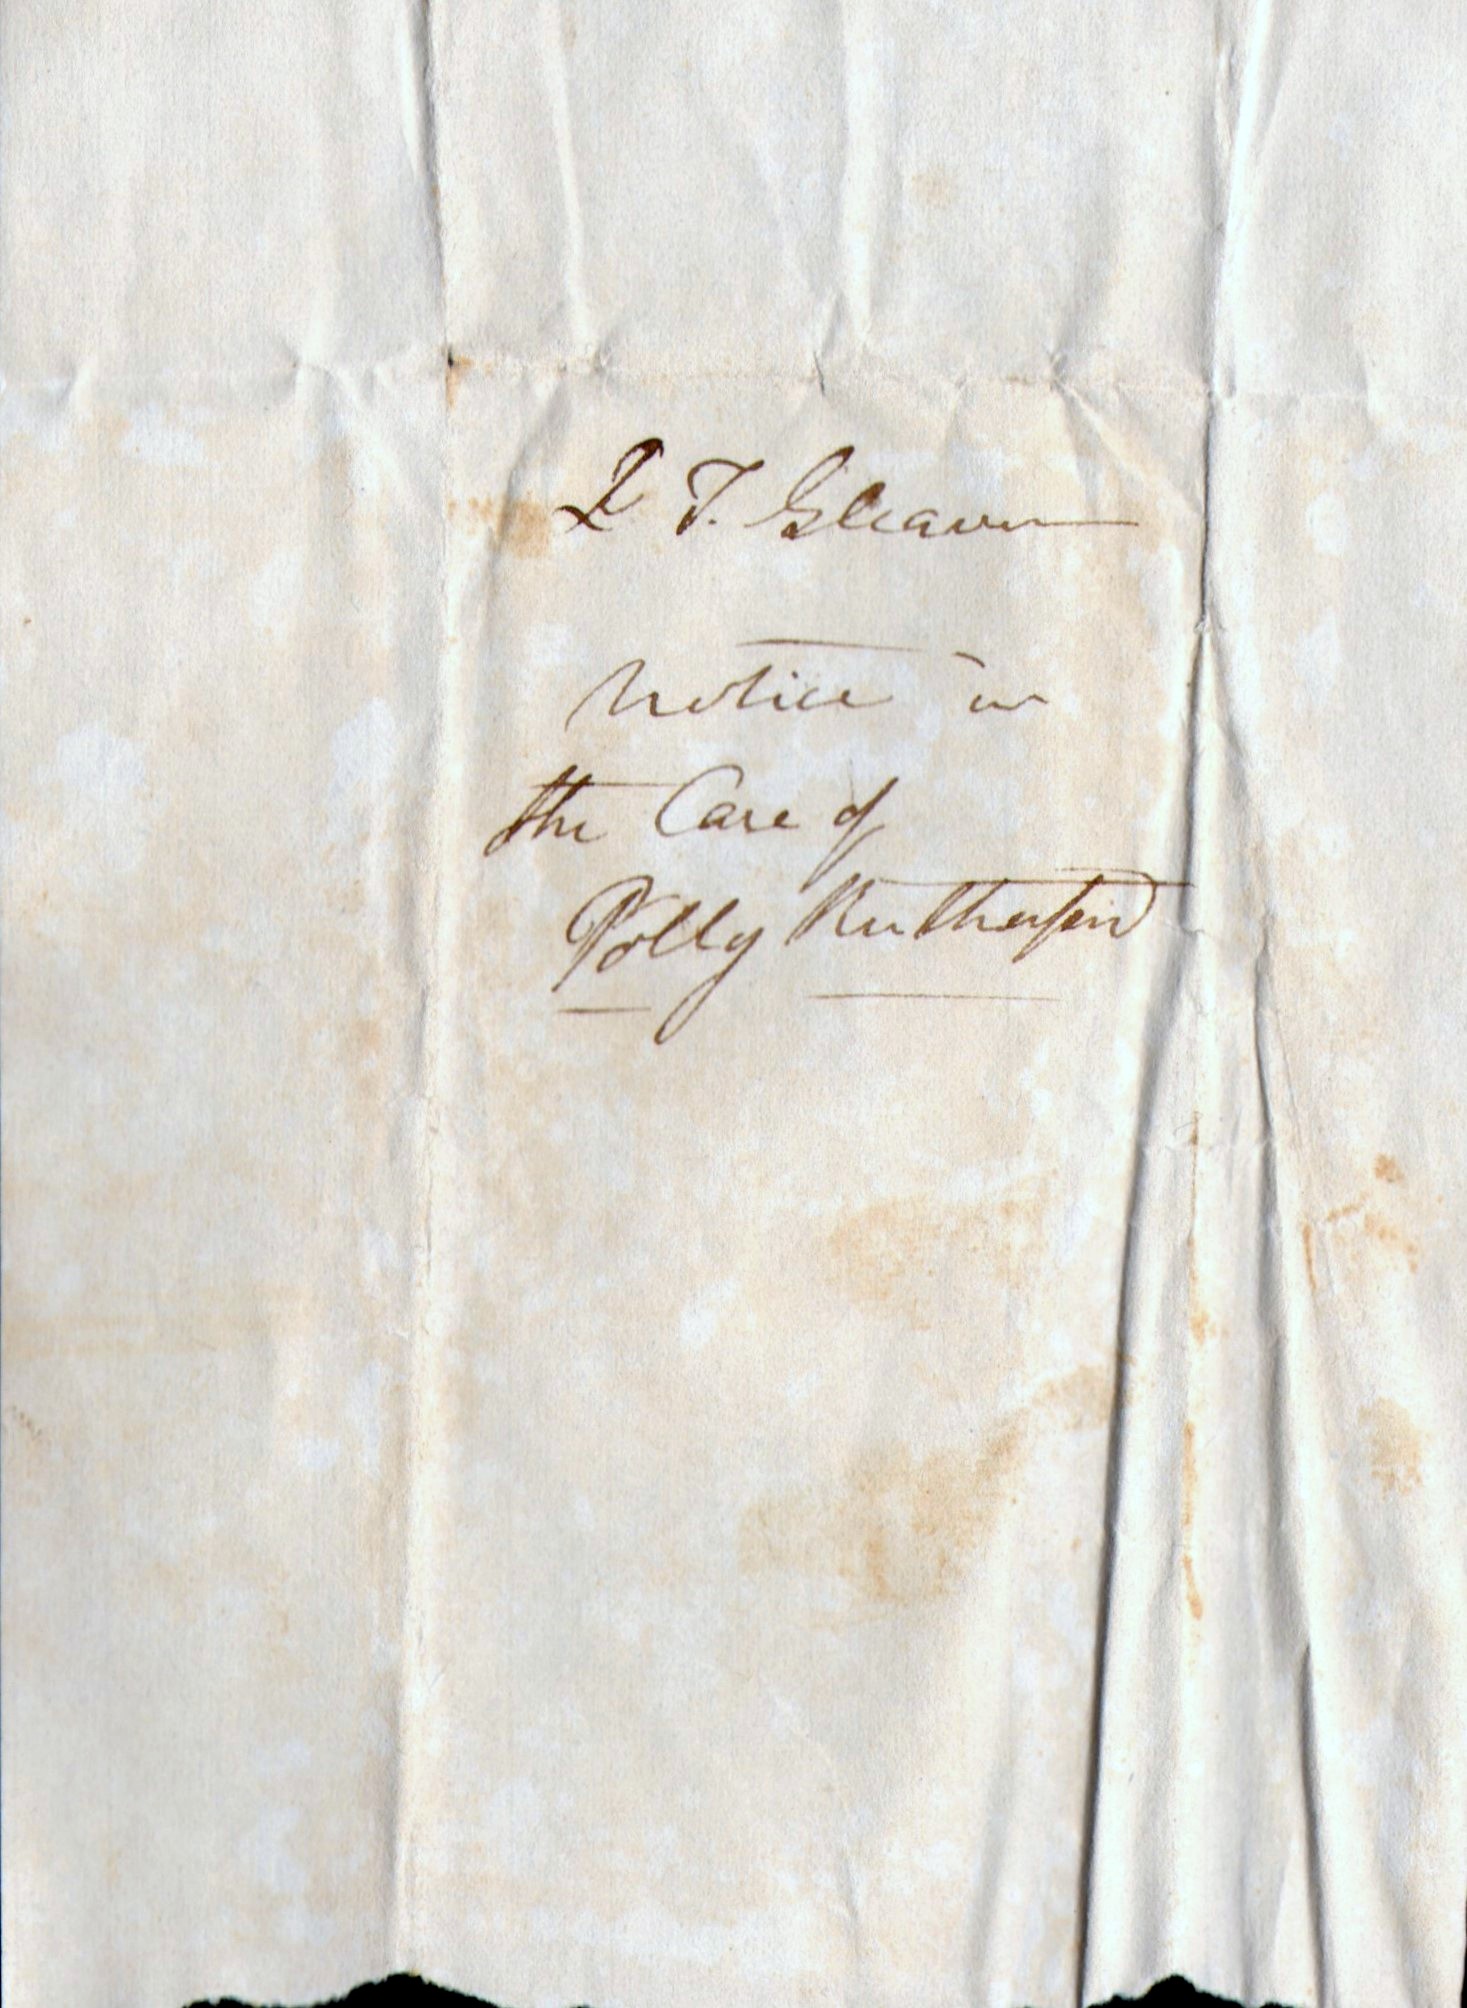 T. Gleaves
Notice in
the Case of
Polly Rutherford